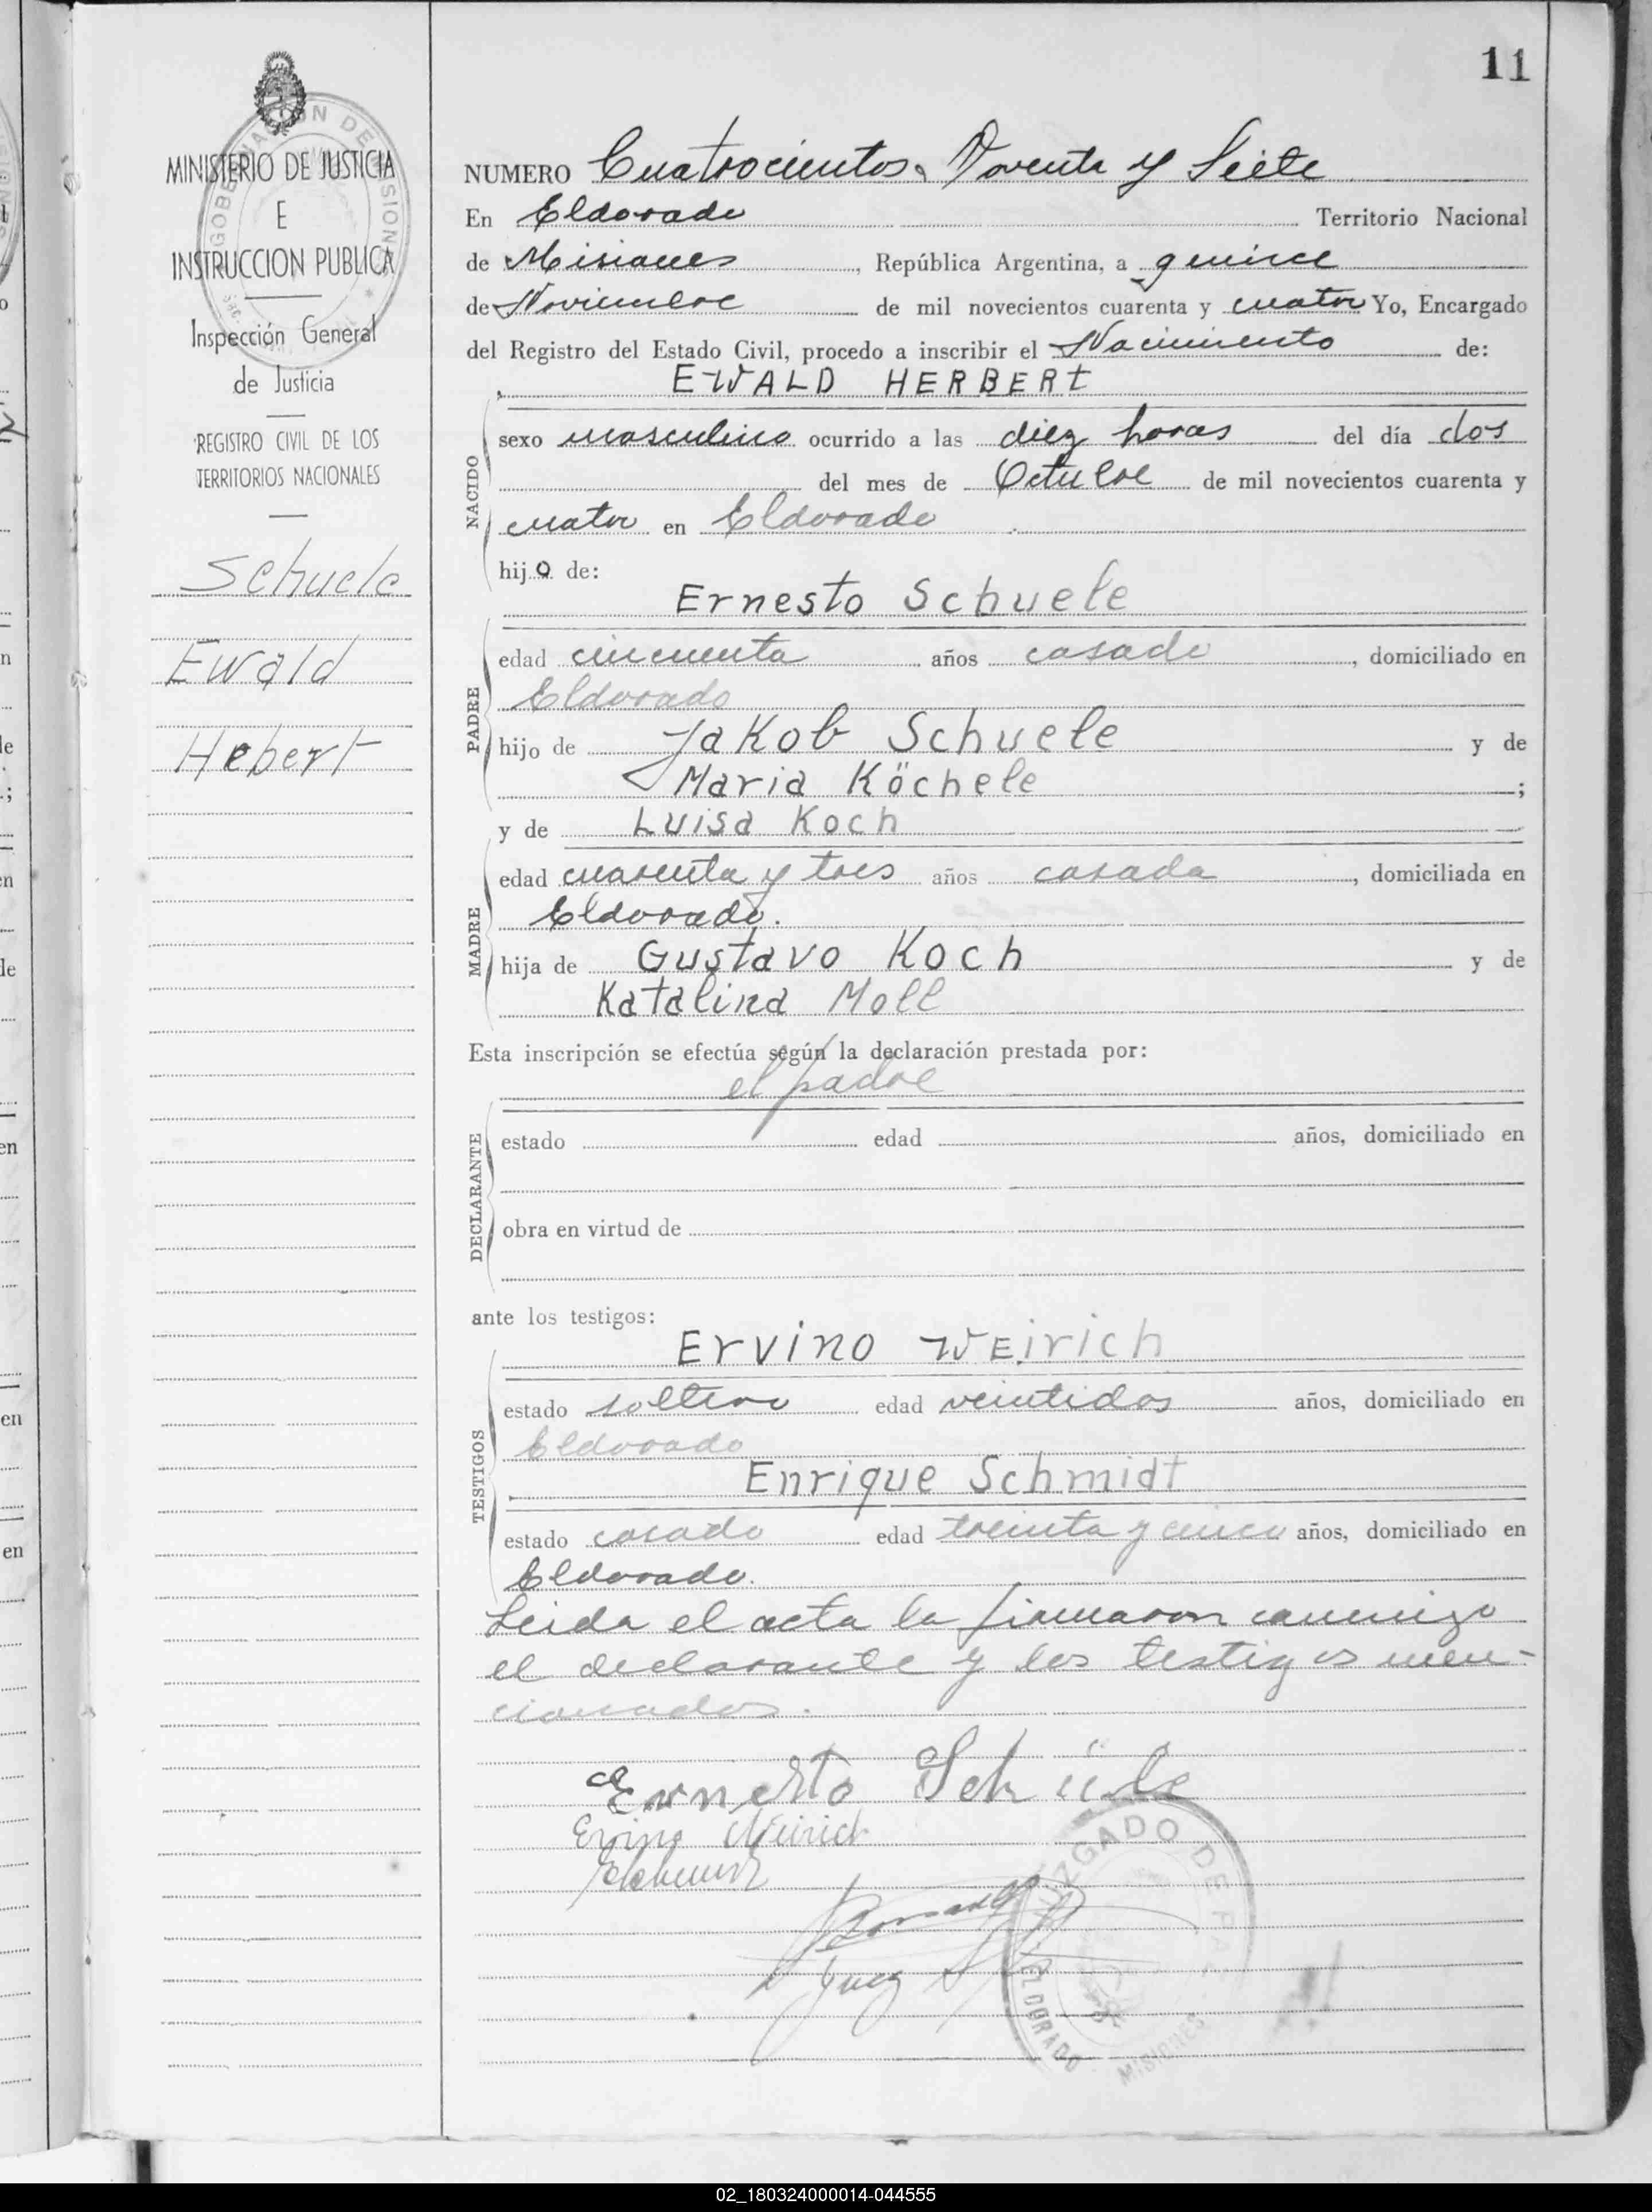 11
GOBERNACION DE MISIONES
MINISTERIO DE JUSTICIA
E
INSTRUCCION PUBLICA
Inspección General
de Justicia
REGISTRO CIVIL DE LOS
TERRITORIOS NACIONALES
Schuele
Ewald
Hebert
NUMERO Cuatrocientos Noventa y Siete
En Eldorado Territorio Nacional
de Misiones, República Argentina, a quince
de Noviembre de mil novecientos cuarenta y cuatro Yo, Encargado
del Registro del Estado Civil, procedo a inscribir el Nacimiento de:
EWALD HERBERt
NACIDO
sexo masculino ocurrido a las diez horas del día dos
del mes de Octubre de mil novecientos cuarenta y
cuatro en Eldorado
hijo de:
Ernesto Schuele
PADRE
edad cincuenta años casado, domiciliado en
Eldorado
hijo de Jakob Schuele y de
Maria Köchele;
y de Luisa Koch
MADRE
edad cuarenta y tres años casada, domiciliada en
Eldorado.
hija de Gustavo Koch y de
Katalina Moll
Esta inscripción se efectúa según la declaración prestada por:
el padre
DECLARANTE
estado edad años, domiciliado en
obra en virtud de
ante los testigos:
Ervino WEirich
TESTIGOS
estado soltero edad veintidos años, domiciliado en
Eldorado
Enrique Schmidt
estado casado edad treinta y cinco años, domiciliado en
Eldorado.
Leida el acta la firmaron conmigo
el declarante y los testigos men-
cionados.
Ernesto Schüle
Ervino Weirich
Juez
JUZGADO DE PAZ
ELDORADO MISIONES
02_180324000014-044555